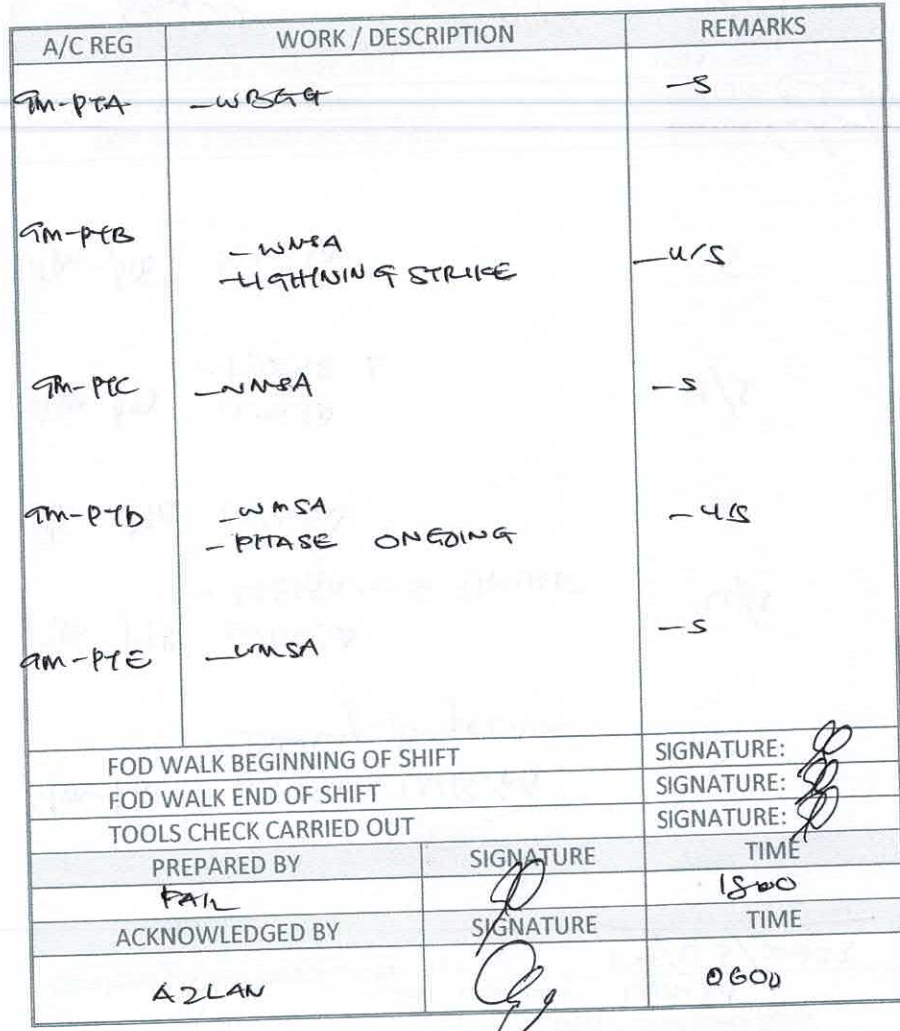 A/C REG WORK / DESCRIPTION REMARKS
9M-PTA -WBGG -S
9M-PTB -WMSA -U/S
-LIGHTNING STRIKE
9M-PTC -WMSA -S
9M-PTD -WMSA -U/S
-PHASE ONGOING
9M-PTE -WMSA -S
FOD WALK BEGINNING OF SHIFT SIGNATURE:
FOD WALK END OF SHIFT SIGNATURE:
TOOLS CHECK CARRIED OUT SIGNATURE:
PREPARED BY SIGNATURE TIME
1800
ACKNOWLEDGED BY SIGNATURE TIME
AZLAN 0600